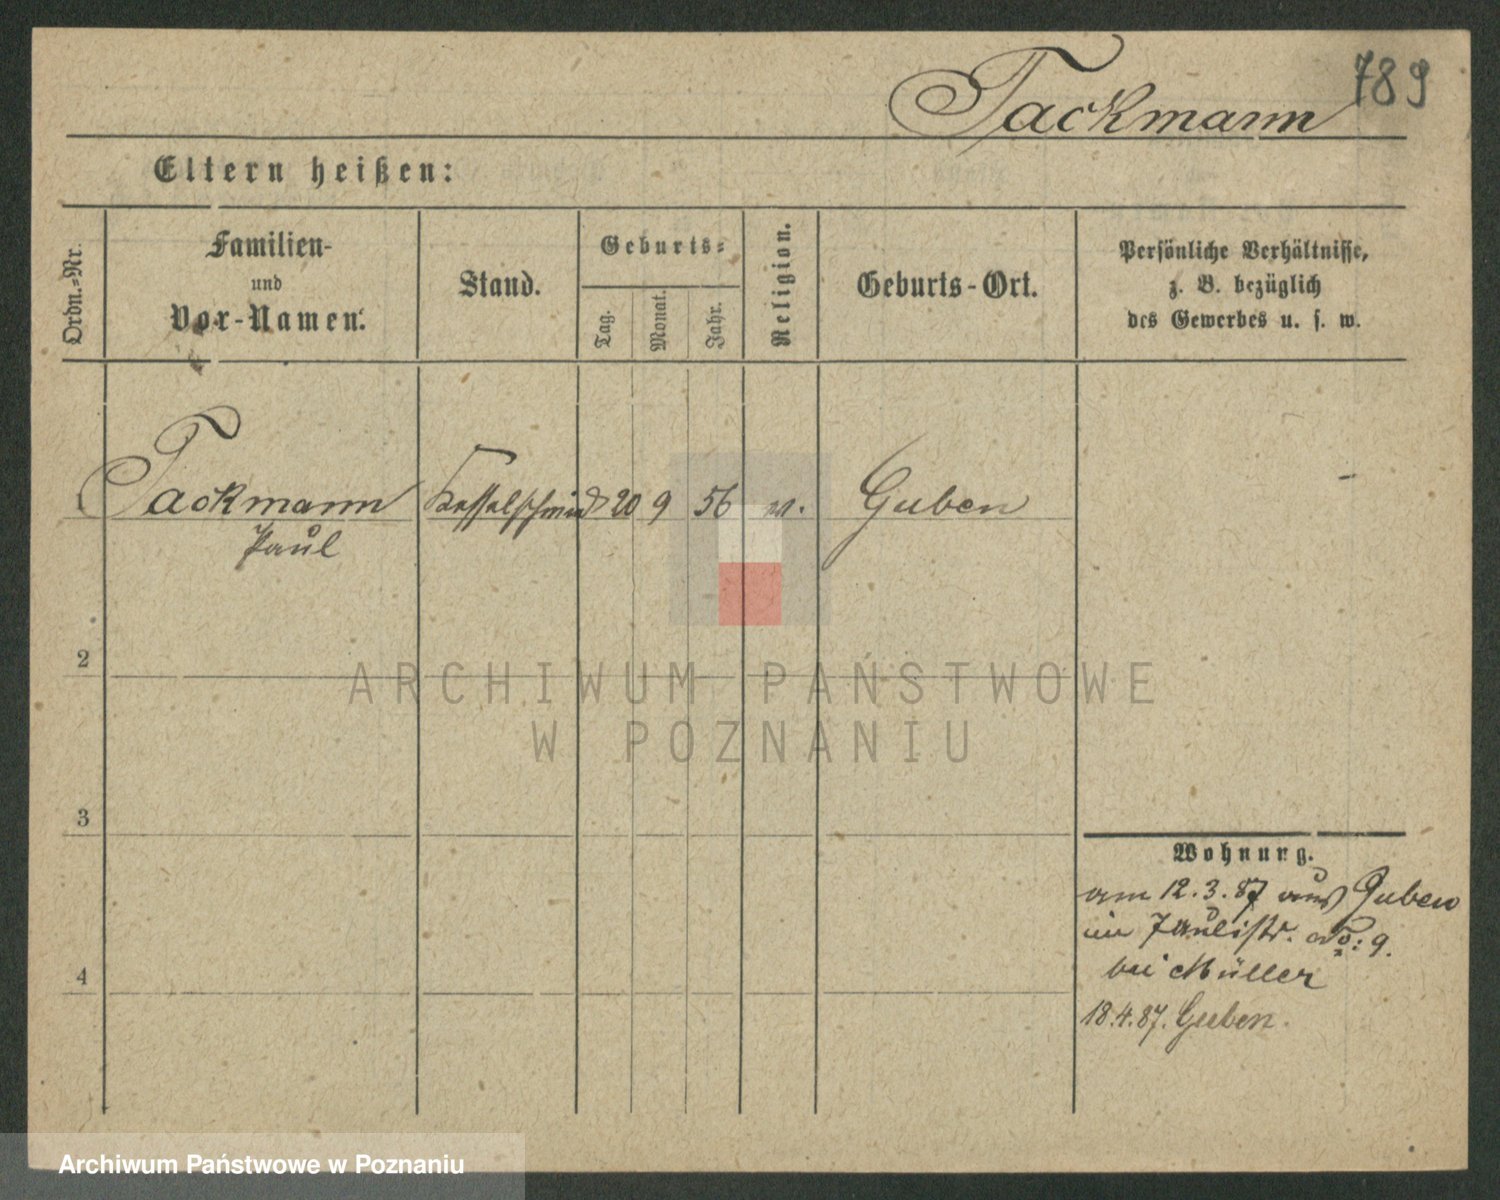 789
Tackmann
Eltern heißen:
Ordn.-Nr.
Familien-
und
Vor-Namen.
Stand.
Geburts-
Tag.
Monat.
Jahr.
Religion.
Geburts-Ort.
Persönliche Verhältnisse,
z. B. bezüglich
des Gewerbes u. s. w.
1 Tackmann Kesselschmied 20 9 56 Guben -
Paul
2
3
4
Wohnung.
am 12.3.87 aus Guben
im Paulistr. No: 9.
bei Müller
18.4.87. Guben.
ARCHIWUM PAŃSTWOWE
W POZNANIU
Archiwum Państwowe w Poznaniu